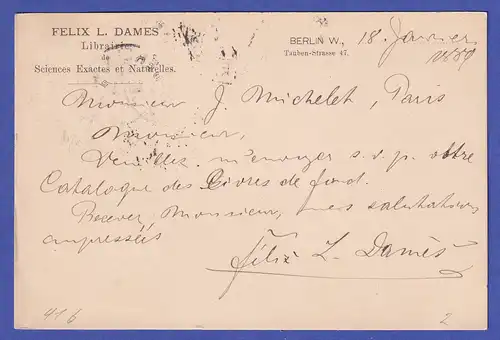 FELIX L. DAMES
Librairie
de
Sciences Exactes et Naturelles.
BERLIN W.,
Tauben-Strasse 47.
18 Janvier
1889
Monsieur J. Michelet, Paris
Monsieur,
Veuillez m'envoyer s.v.p. votre
Catalogue des Livres de fond.
Recevez, Monsieur, mes salutations
empressées
Félix L. Dames
416
2